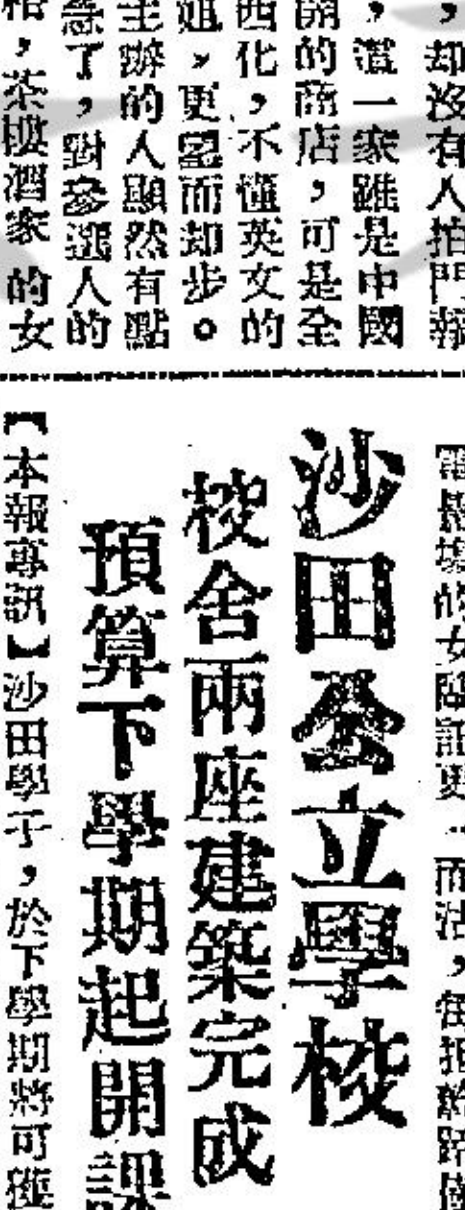 ，却沒有人拍門報
，這一家雖是中國
開的商店，可是全
西化，不懂英文的
姐，更望而却步。
主辦的人顯然有點
急了，對參選人的
格，茶樓酒家的女
的女 更 ，
沙田公立學校
校舍兩座建築完成
預算下學期起開課
【本報專訊】沙田學子，於下學期將可獲